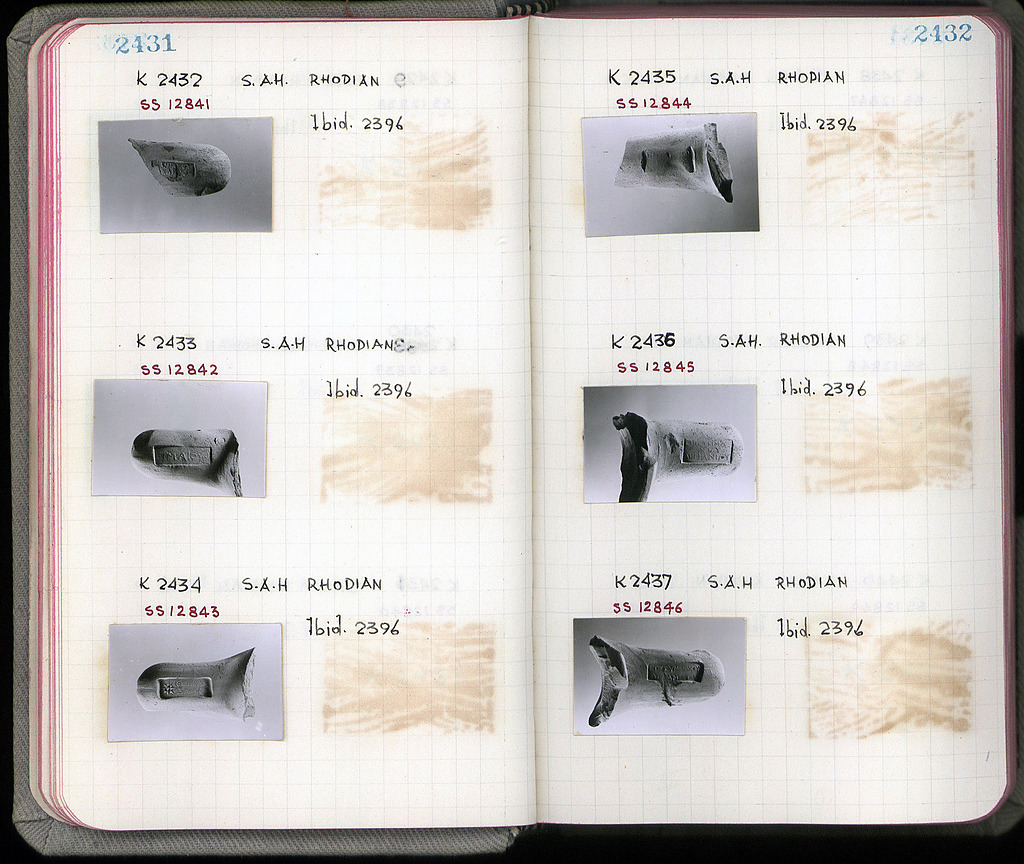 2431
K 2432 S.A.H. RHODIAN
SS 12841
Ibid. 2396
K 2433 S.A.H RHODIAN
SS 12842
Ibid. 2396
K 2434 S.A.H RHODIAN
SS 12843
Ibid. 2396
2432
K 2435 S.A.H RHODIAN
SS 12844
Ibid. 2396
K 2436 S.A.H. RHODIAN
SS 12845
Ibid. 2396
K 2437 S.A.H RHODIAN
SS 12846
Ibid. 2396